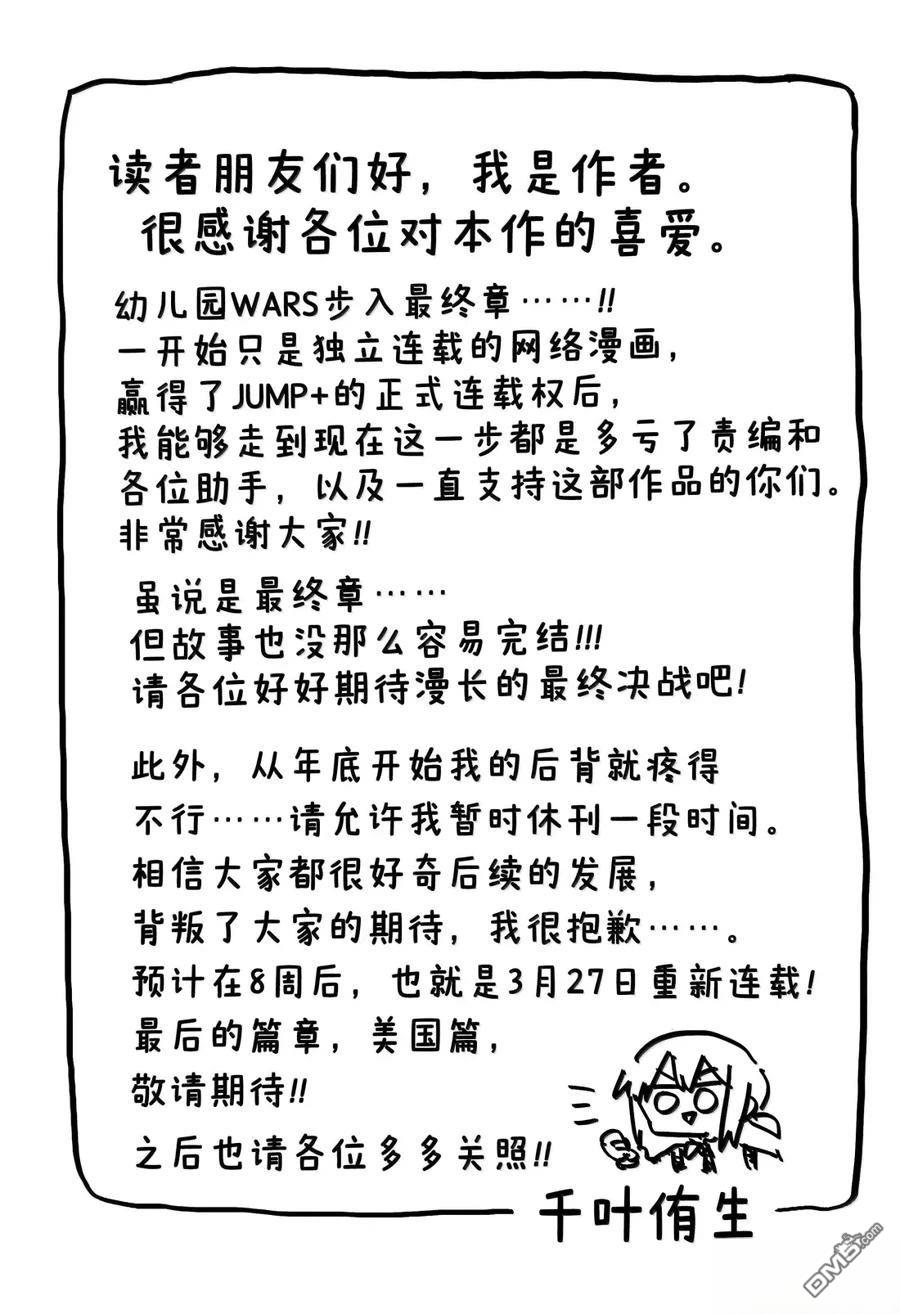 读者朋友们好，我是作者。
很感谢各位对本作的喜爱。
幼儿园WARS步入最终章……!!
一开始只是独立连载的网络漫画，
赢得了JUMP+的正式连载权后，
我能够走到现在这一步都是多亏了责编和
各位助手，以及一直支持这部作品的你们。
非常感谢大家!!
虽说是最终章……
但故事也没那么容易完结!!!
请各位好好期待漫长的最终决战吧!
此外，从年底开始我的后背就疼得
不行……请允许我暂时休刊一段时间。
相信大家都很好奇后续的发展，
背叛了大家的期待，我很抱歉……。
预计在8周后，也就是3月27日重新连载!
最后的篇章，美国篇，
敬请期待!!
之后也请各位多多关照!!
千叶侑生
DM5.com